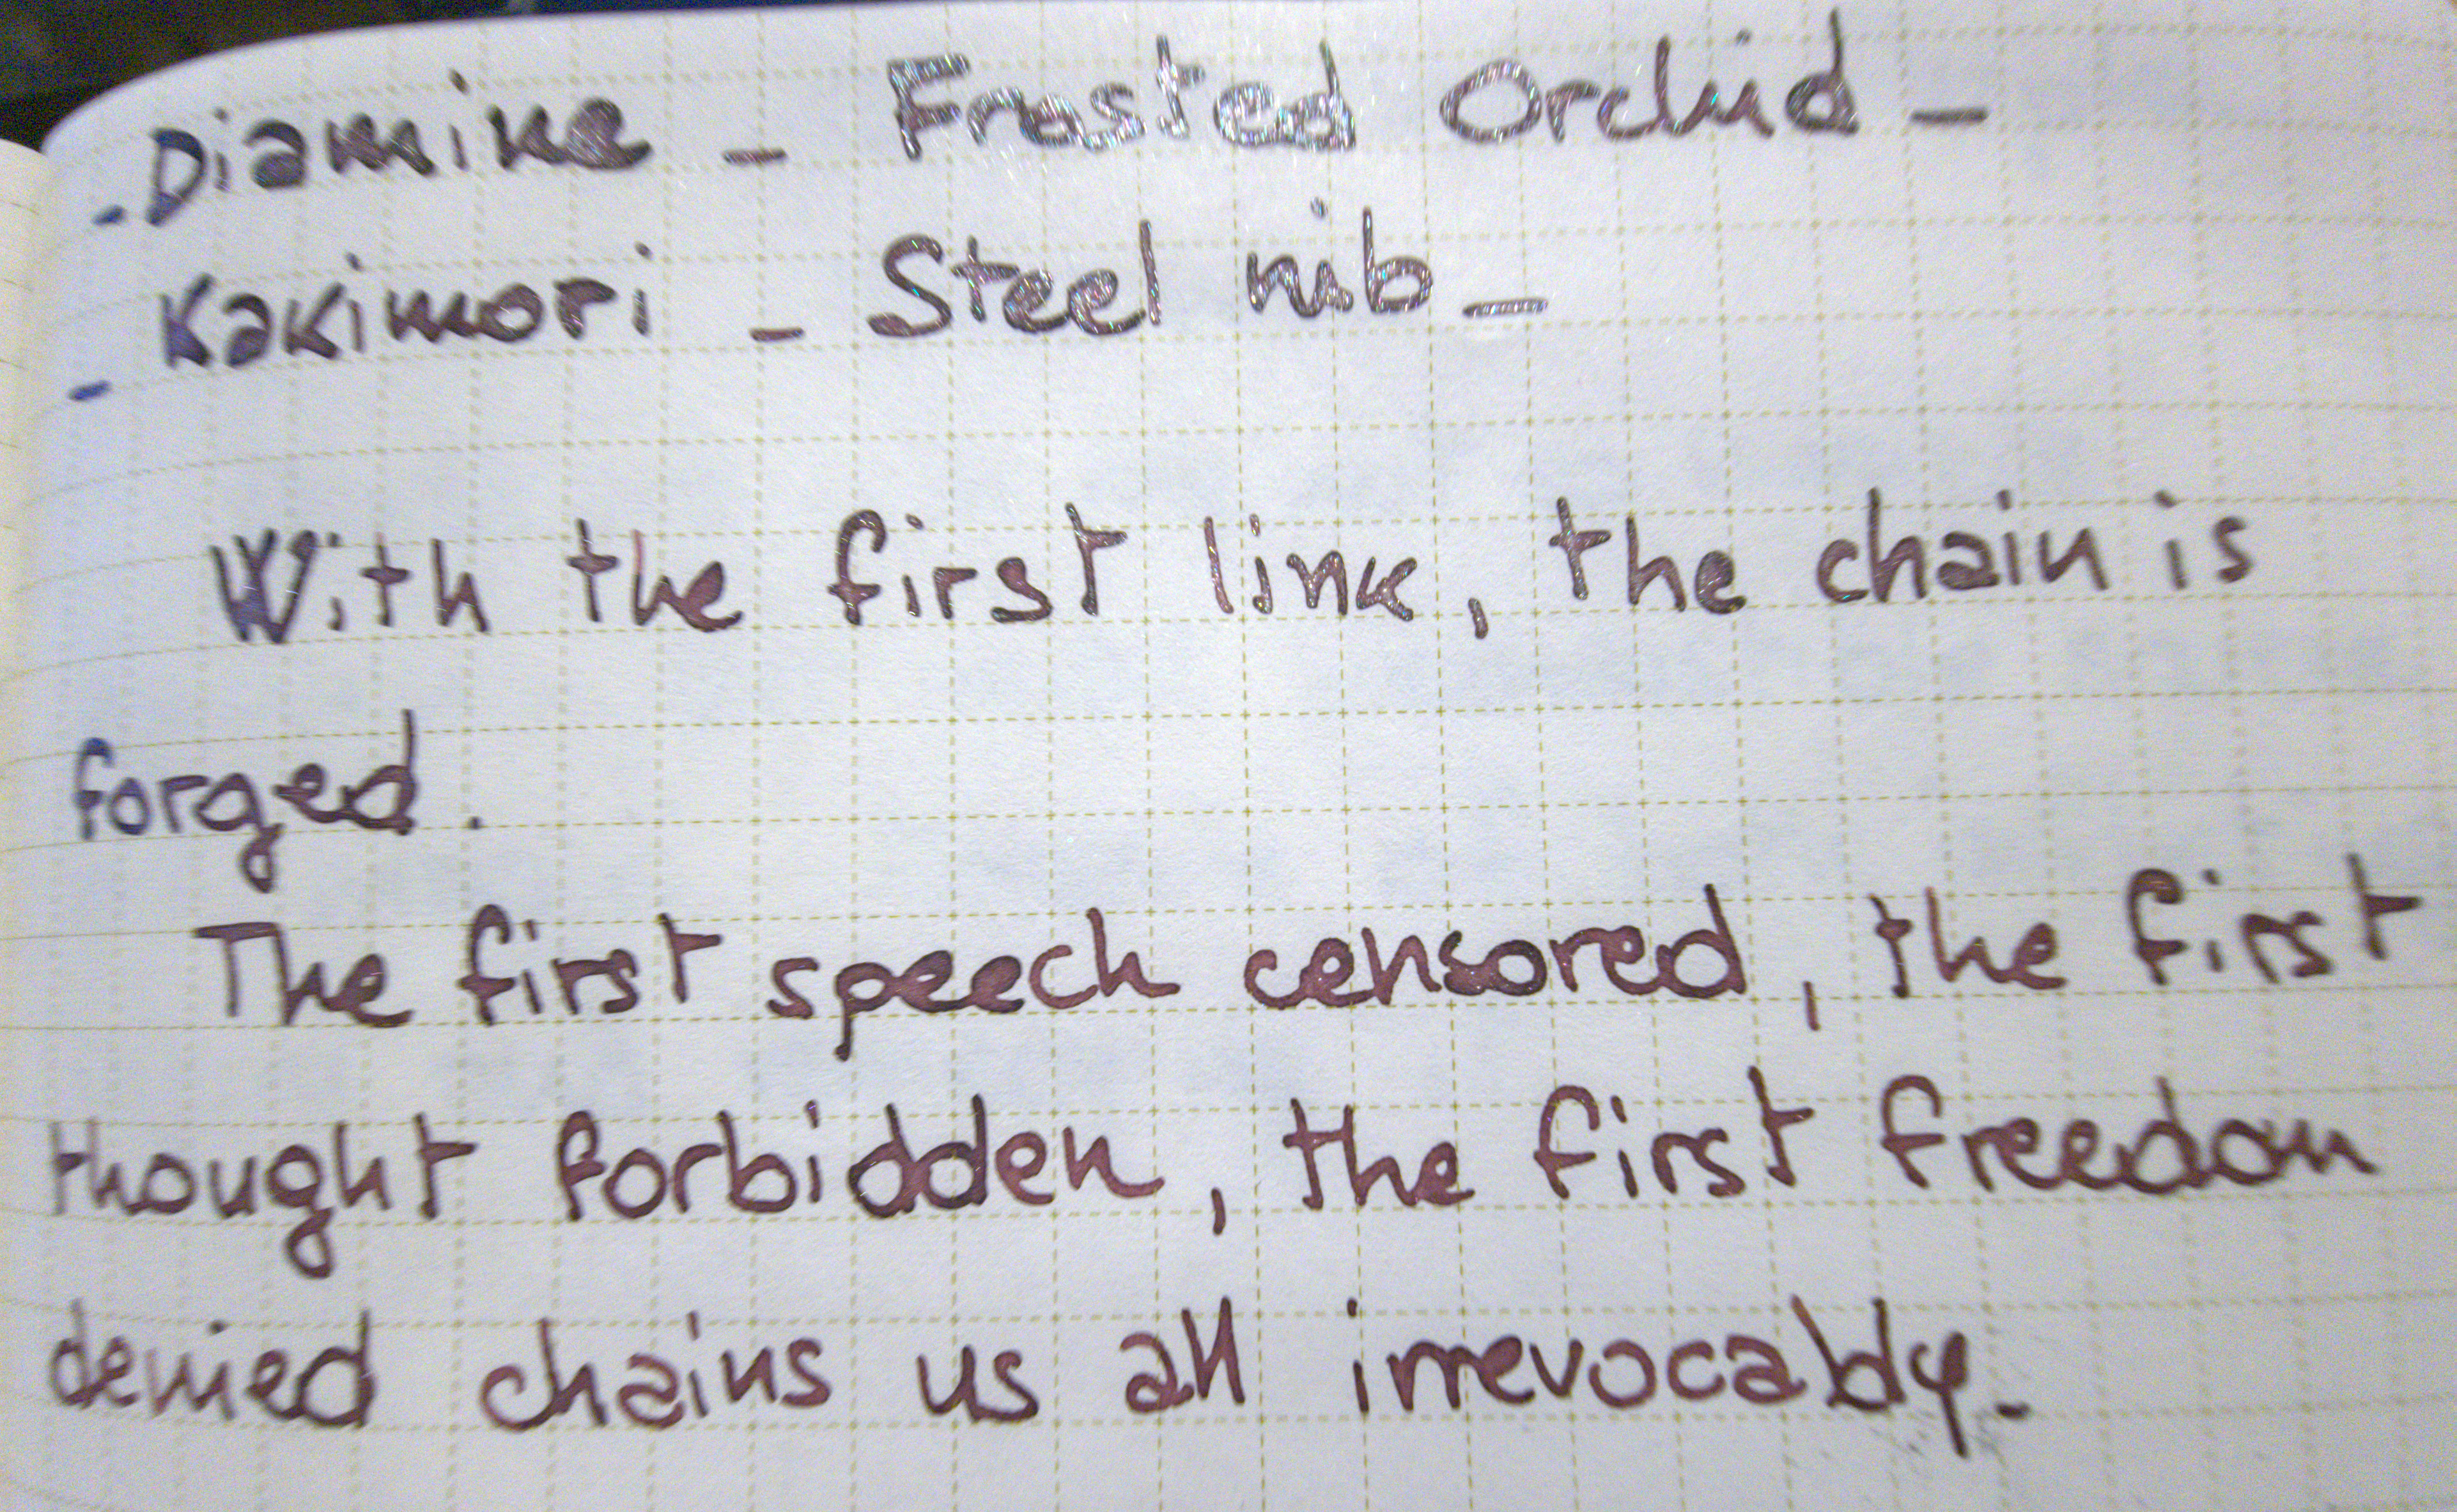 - Diamine - Frosted Orchid -
- Kakimori - Steel nib -
With the first link, the chain is
forged.
The first speech censored, the first
thought forbidden, the first freedom
denied chains us all irrevocably.